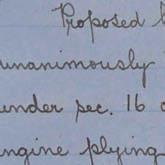 Proposed
unanimously
under sec. 16
engine plying